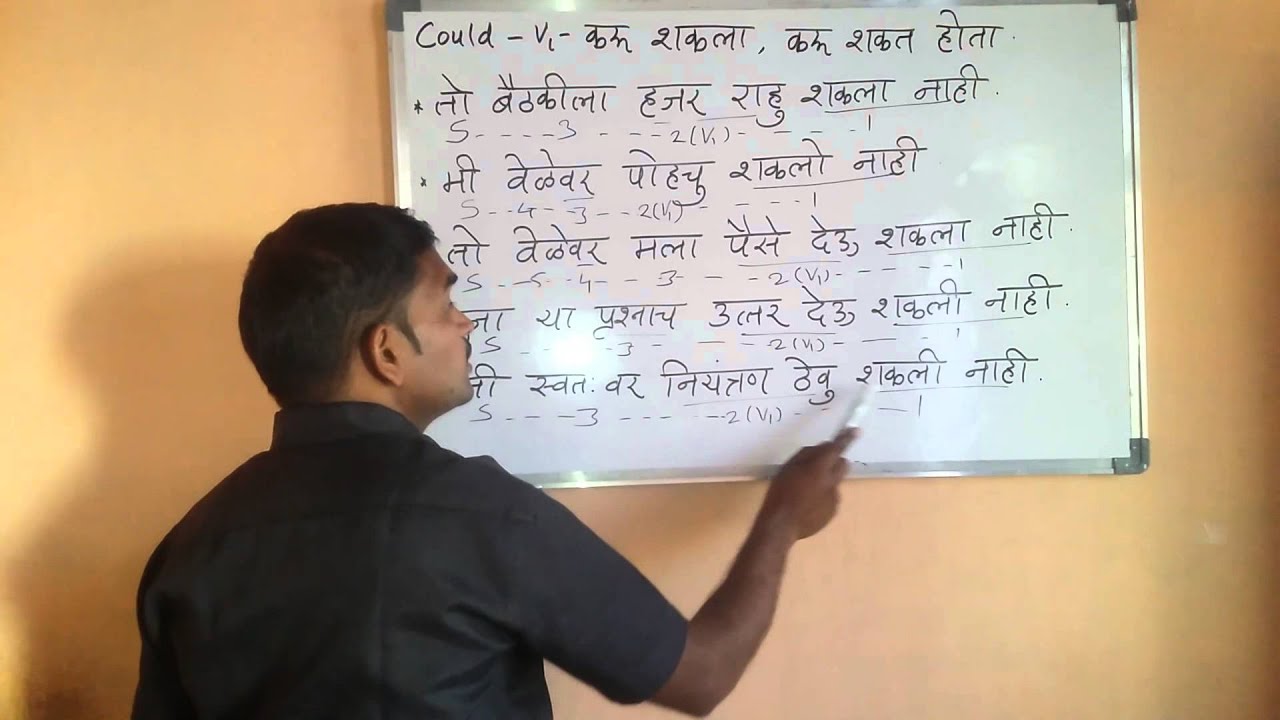 Could – V₁ – करू शकला, करू शकत होता.
* तो बैठकीला हजर राहु शकला नाही.
S - - - - 3 - - - - 2 (V₁) - - - - 1
* मी वेळेवर पोहचु शकलो नाही
S - - 4 - - 3 - - - 2 (V₁) - - - - - 1
तो वेळेवर मला पैसे देऊ शकला नाही.
S - - 5 - - 4 - - - 3 - - - 2 (V₁) - - - - - 1
या प्रश्नाच उत्तर देऊ शकली नाही.
S - - - - - 3 - - - - 2 (V₁) - - - - 1
स्वतः वर नियंत्रण ठेवु शकली नाही.
S - - - - 3 - - - - - - - 2 (V₁) - - - - 1